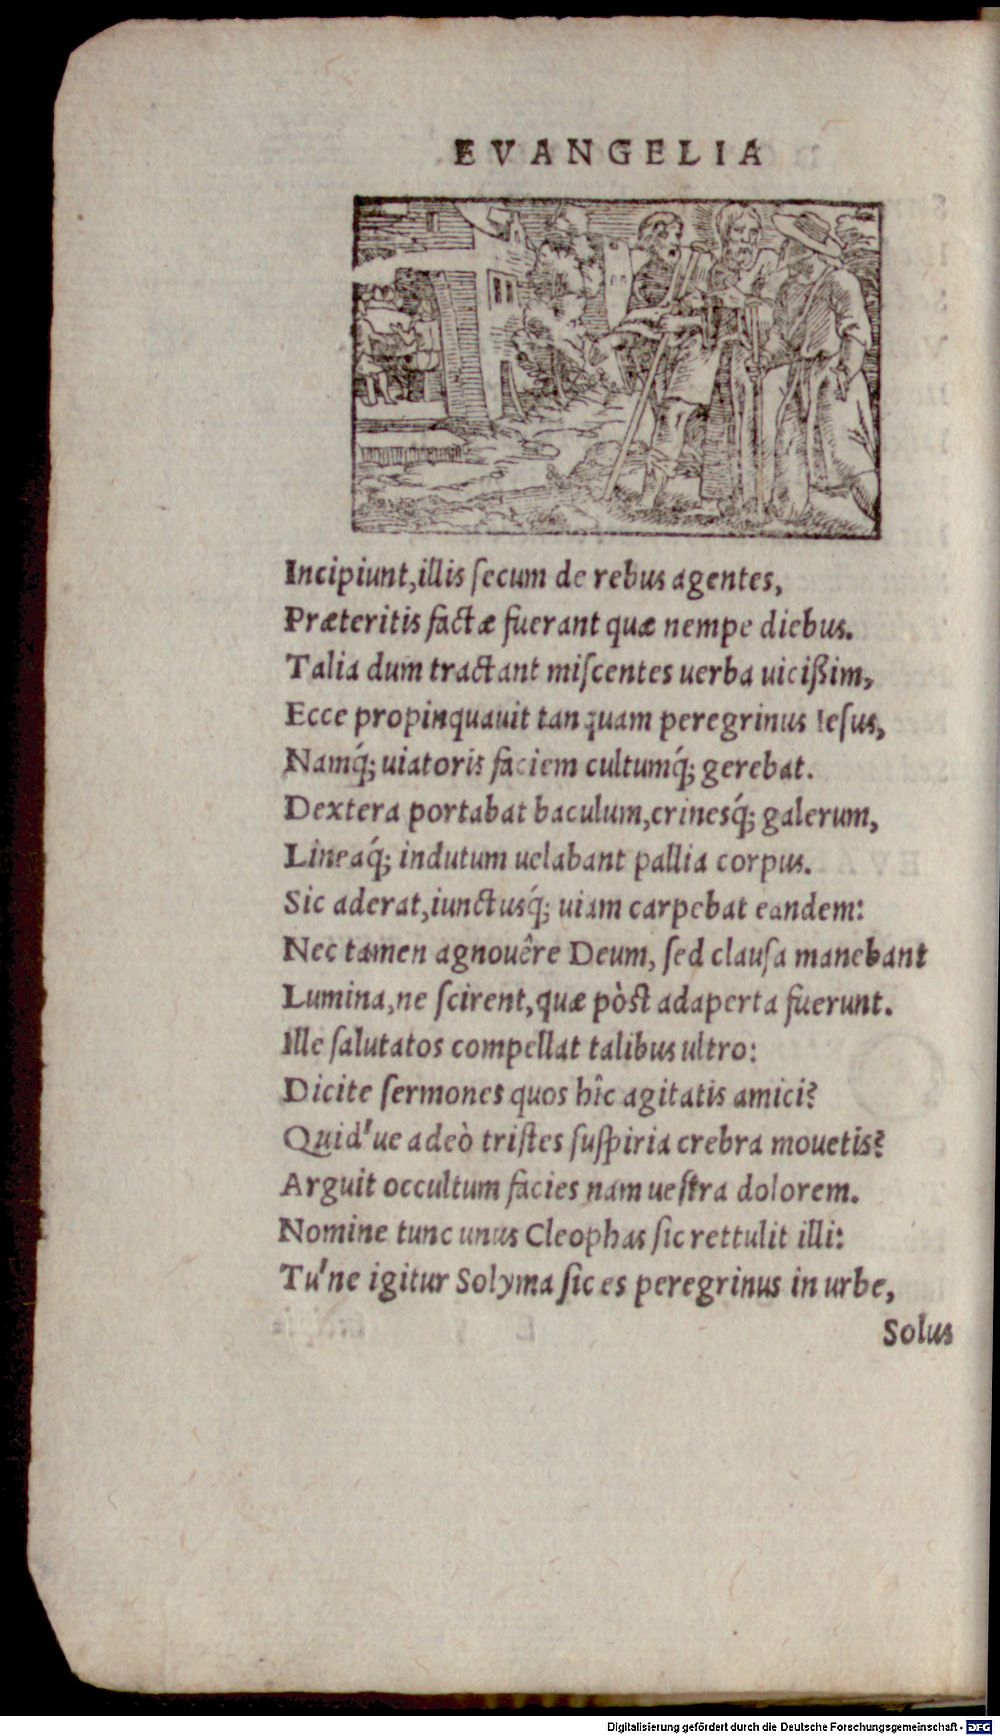 EVANGELIA
Incipiunt,illis ſecum de rebus agentes,
Præteritis factæ fuerant quæ nempe diebus.
Talia dum tractant miſcentes uerba uicißim,
Ecce propinquauit tanquam peregrinus Ieſus,
Namq́; uiatoris faciem cultumq́; gerebat.
Dextera portabat baculum,crinesq́; galerum,
Lineaq́; indutum uelabant pallia corpus.
Sic aderat,iunctusq́; uiam carpebat eandem:
Nec tamen agnouêre Deum, ſed clauſa manebant
Lumina,ne ſcirent,quæ pòst adaperta fuerunt.
Ille ſalutatos compellat talibus ultro:
Dicite ſermones quos hîc agitatis amici?
Quid'ue adeò triſtes ſuſpiria crebra mouetis?
Arguit occultum facies nam ueſtra dolorem.
Nomine tunc unus Cleophas ſic rettulit illi:
Tu'ne igitur Solyma ſic es peregrinus in urbe,
Solus
Digitalisierung gefördert durch die Deutsche Forschungsgemeinschaft - DFG